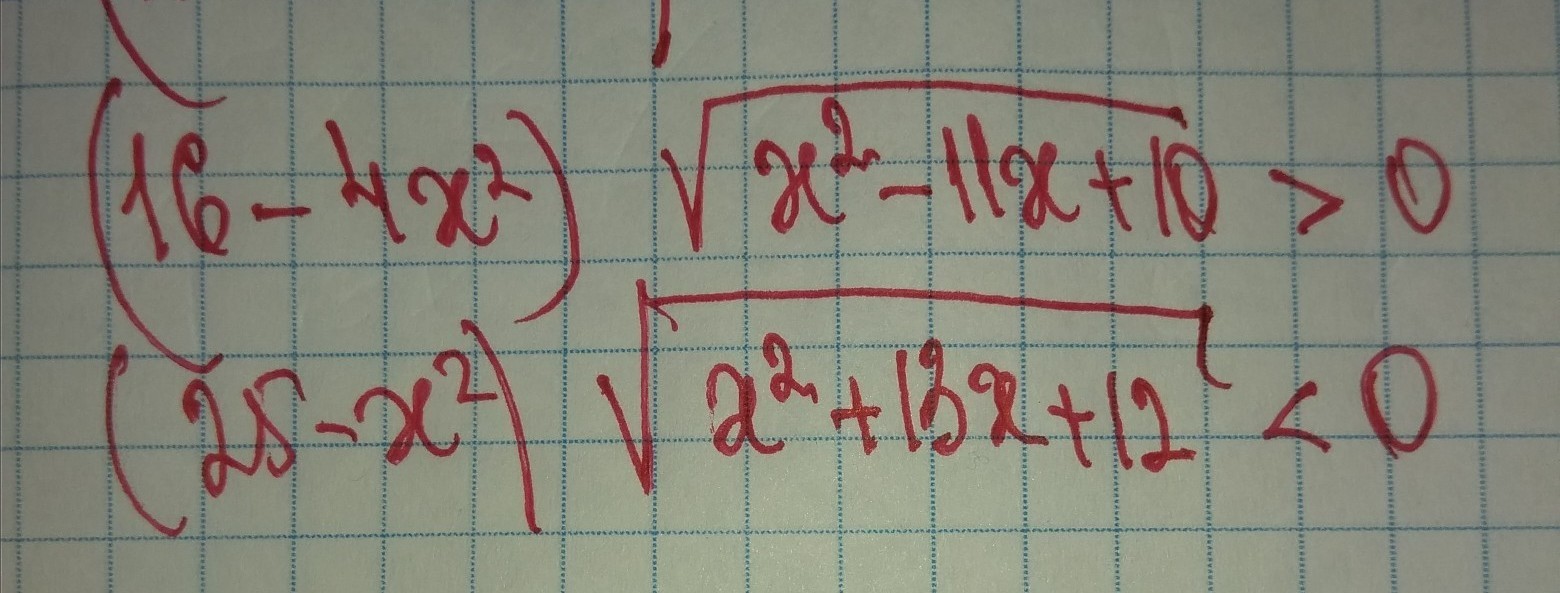 (16 - 4x²) √(x² - 11x + 10) > 0
(25 - x²) √(x² + 13x + 12) < 0